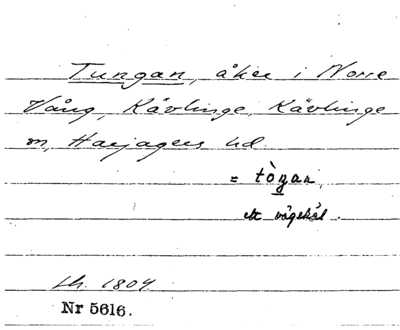 Tungan, åker i Norre
Vång, Kävlinge, Kävlinge
m, Harjagers hd.
= tòŋan,
ett vägskäl.
Lh. 1804
Nr 5616.